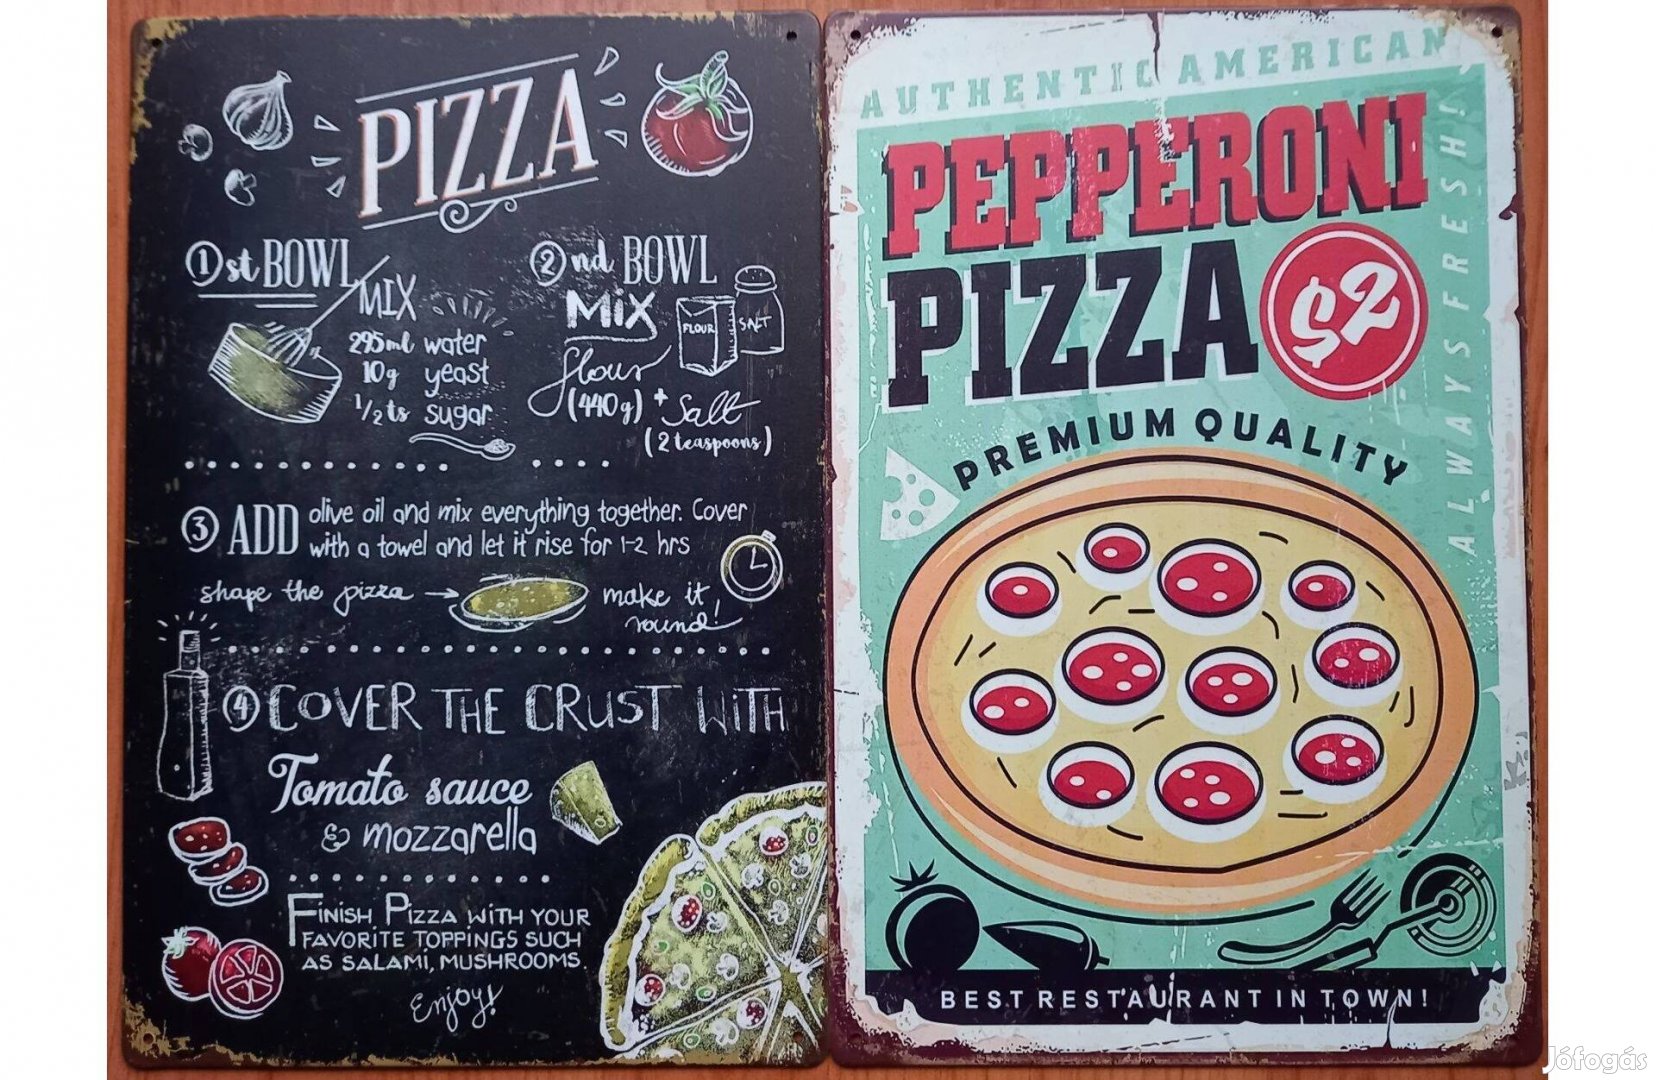 PIZZA
1st BOWL
MIX
295ml water
10g yeast
1/2 ts sugar
2nd BOWL
MiX
FLOUR
SALT
flour
(440g) + Salt
(2 teaspoons)
3 ADD olive oil and mix everything together. Cover
with a towel and let it rise for 1-2 hrs
shape the pizza → make it
round!
4 COVER THE CRUST WiTH
Tomato sauce
& mozzarella
FINISH PIZZA WITH YOUR
FAVORITE TOPPINGS SUCH
AS SALAMI, MUSHROOMS
Enjoy!
AUTHENTIC AMERICAN
PEPPERONI
PIZZA
$2
ALWAYS FRESH!
PREMIUM QUALITY
BEST RESTAURANT IN TOWN!
Jófogás